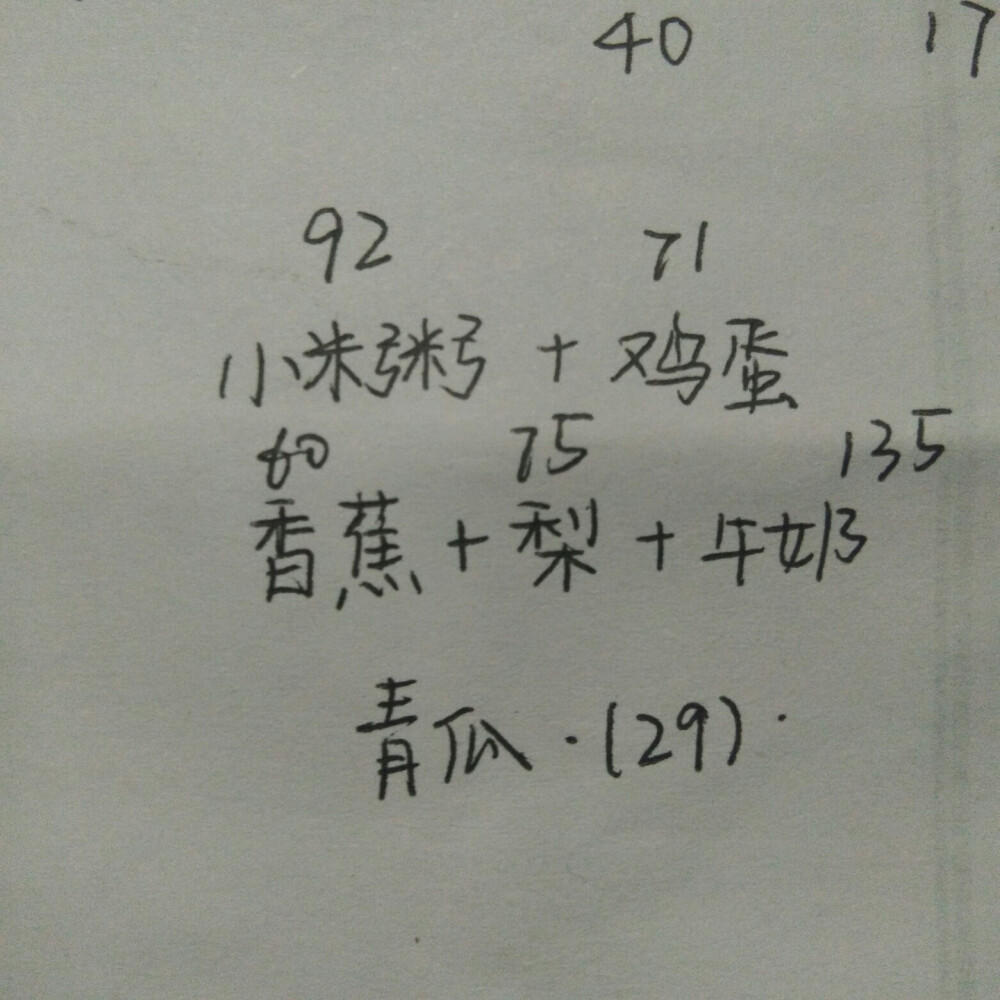 40 17
92 71
小米粥 + 鸡蛋
60 75 135
香蕉 + 梨 + 牛奶
青瓜·(29)·